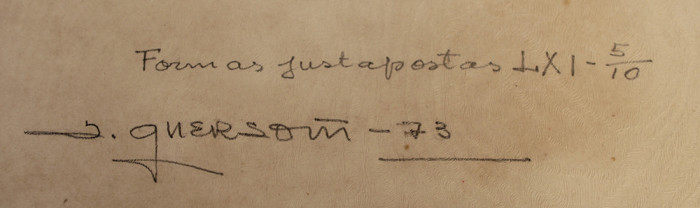 Formas justapostas LXI - 5/10
J. GUERSOM - 73